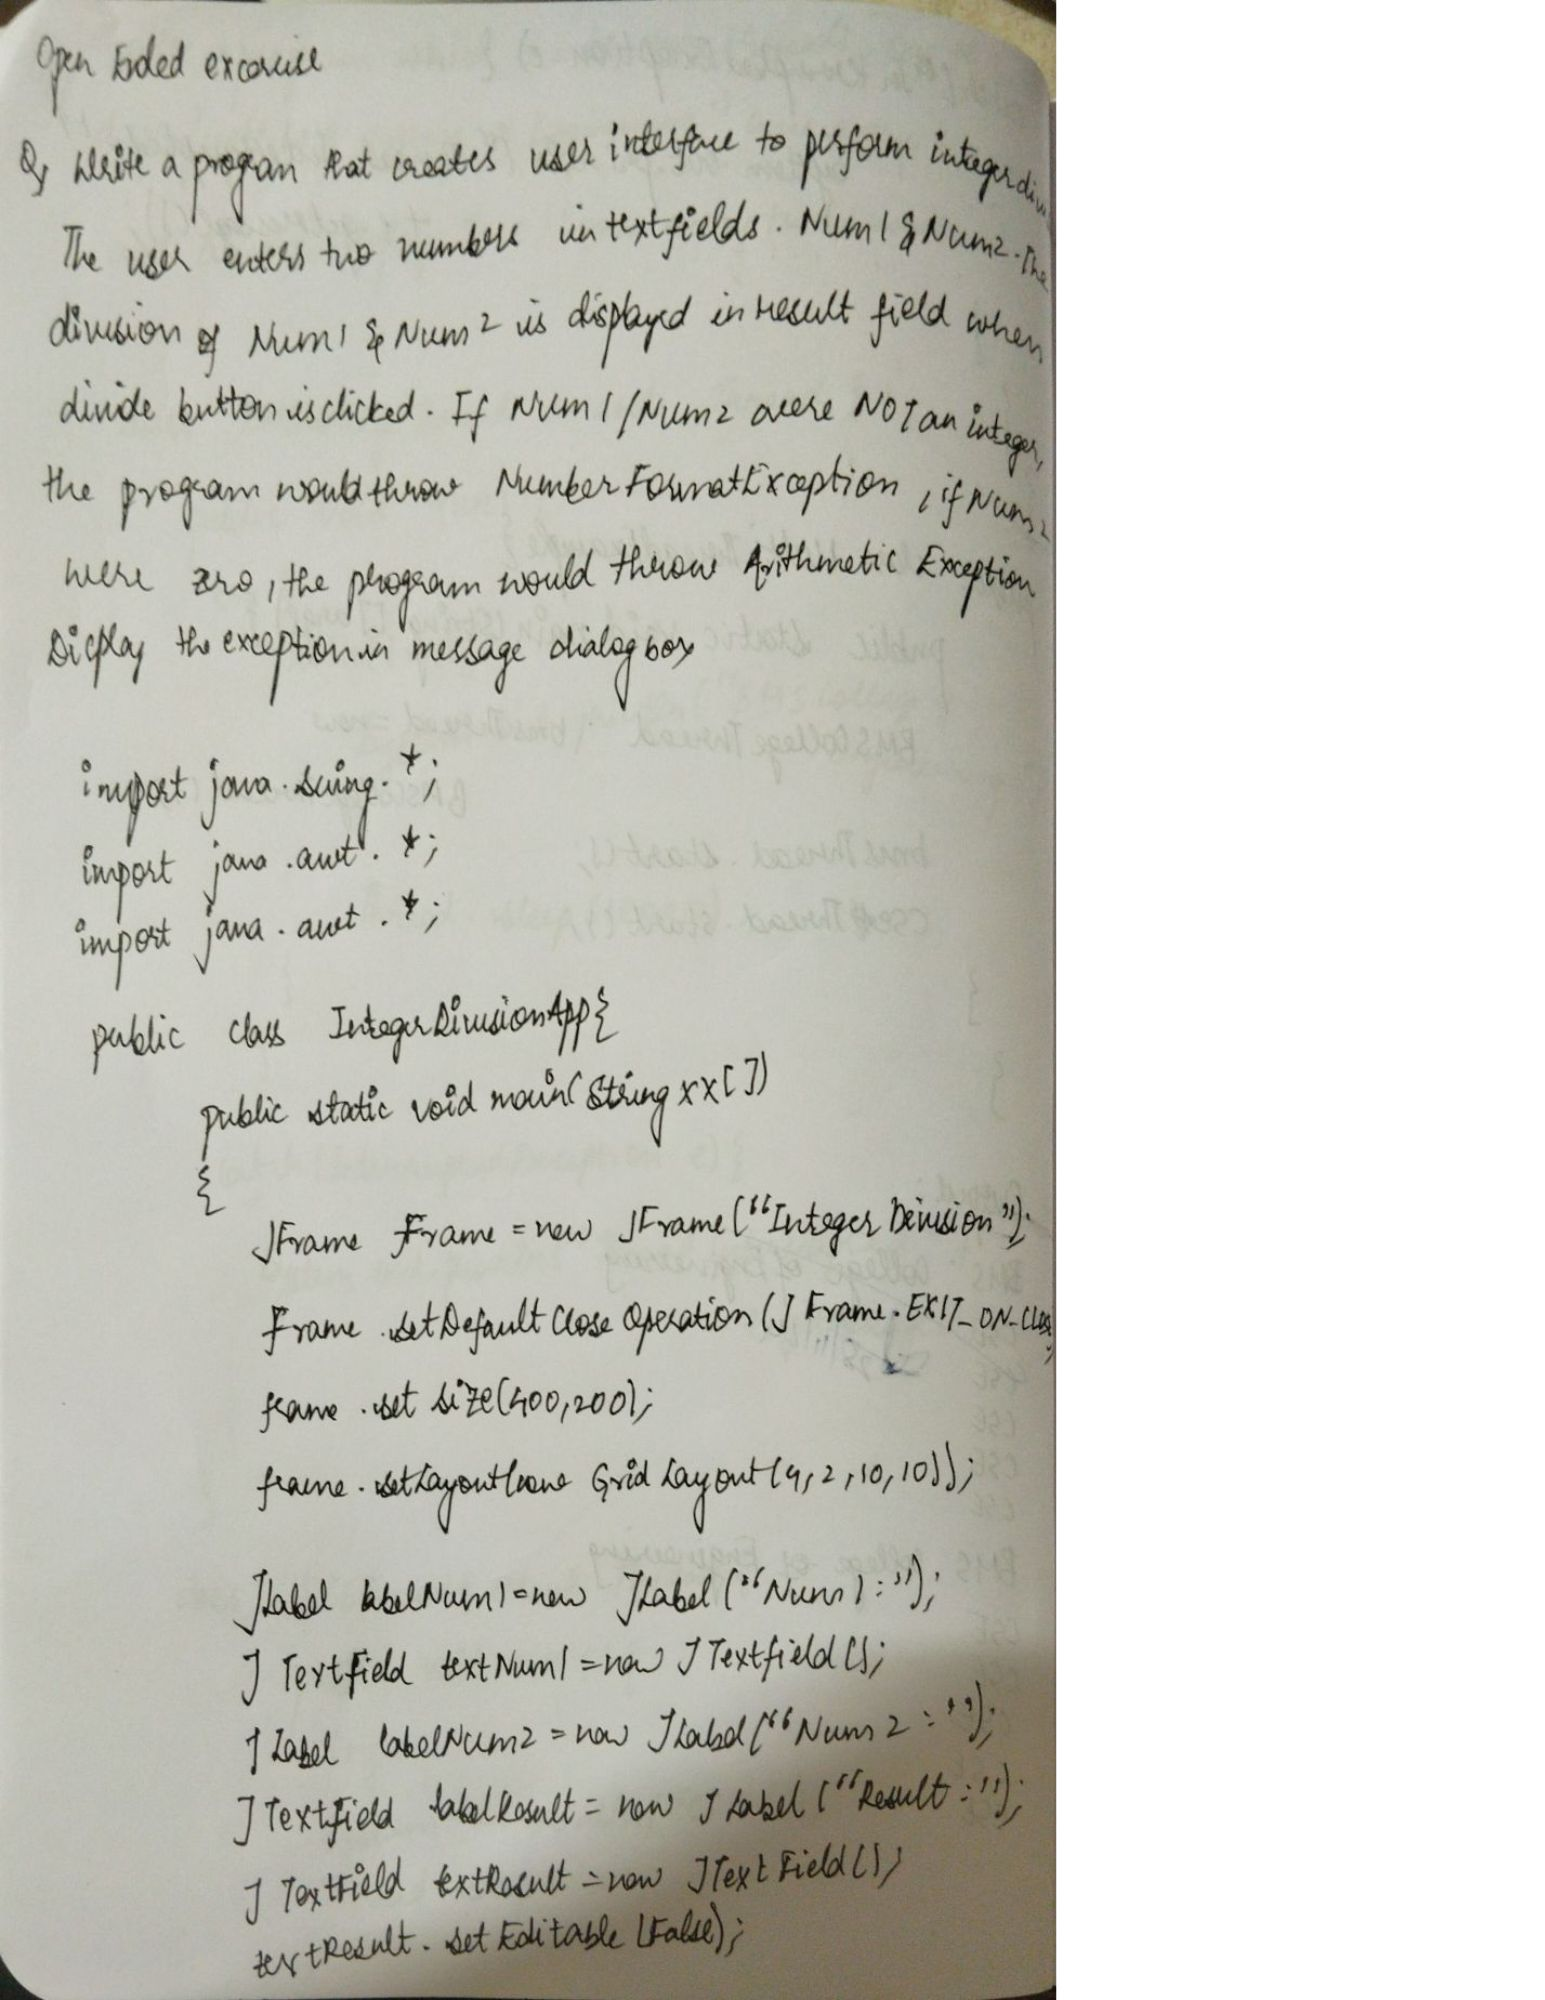 Open Ended excercise
Q, Write a progran that creates user interface to perform integer div
The user enters two numbers in textfields. Num1 & Num2. The
division of Num1 & Num2 is displayed in result field when
divide button is clicked. If Num1/Num2 were NOT an integer,
the program would throw NumberFormatException, if Num2
were zero, the program would throw Arithmetic Exception
Display the exception in message dialog box
import java.swing.*;
import java.awt.*;
import java.awt.*;
public class IntegerDivisionApp{
public static void main(String xx[])
{
JFrame Frame = new JFrame(“Integer Division”);
Frame.setDefaultCloseOperation(JFrame.EXIT_ON_Close);
frame.set size(400,200);
frame.setLayout(new GridLayout(4,2,10,10));
JLabel labelNum1=new JLabel(“Num1:”);
JTextfield textNum1=new JTextfield();
JLabel labelNum2=new JLabel(“Num2:”);
JTextfield labelResult= new JLabel(“Result:”);
JTextField textResult=new JTextField();
textResult.setEditable(False);